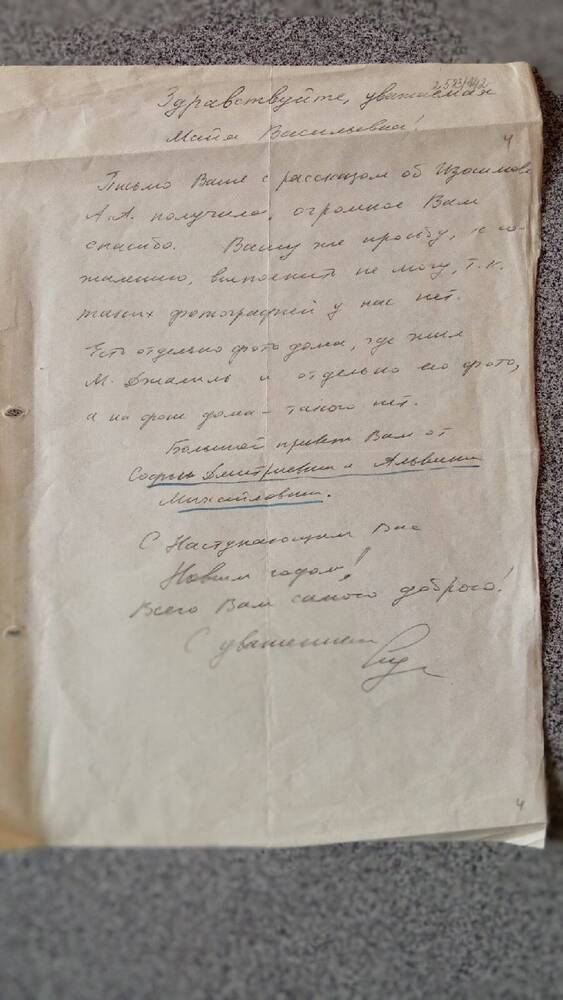 2593/142
Здравствуйте, уважаемая
Майя Васильевна!
4
Письмо Ваше с рассказом об Изосимове
А.А. получила, огромное Вам
спасибо. Вашу же просьбу, к со-
жалению, выполнить не могу, т.к.
таких фотографий у нас нет.
Есть отдельно фото дома, где жил
М. Джалиль и отдельно его фото,
а на фоне дома – такого нет.
Большой привет Вам от
Софьи Дмитриевны и Альвины
Михайловны.
С Наступающим Вас
Новым годом!
Всего Вам самого доброго!
С уважением
4